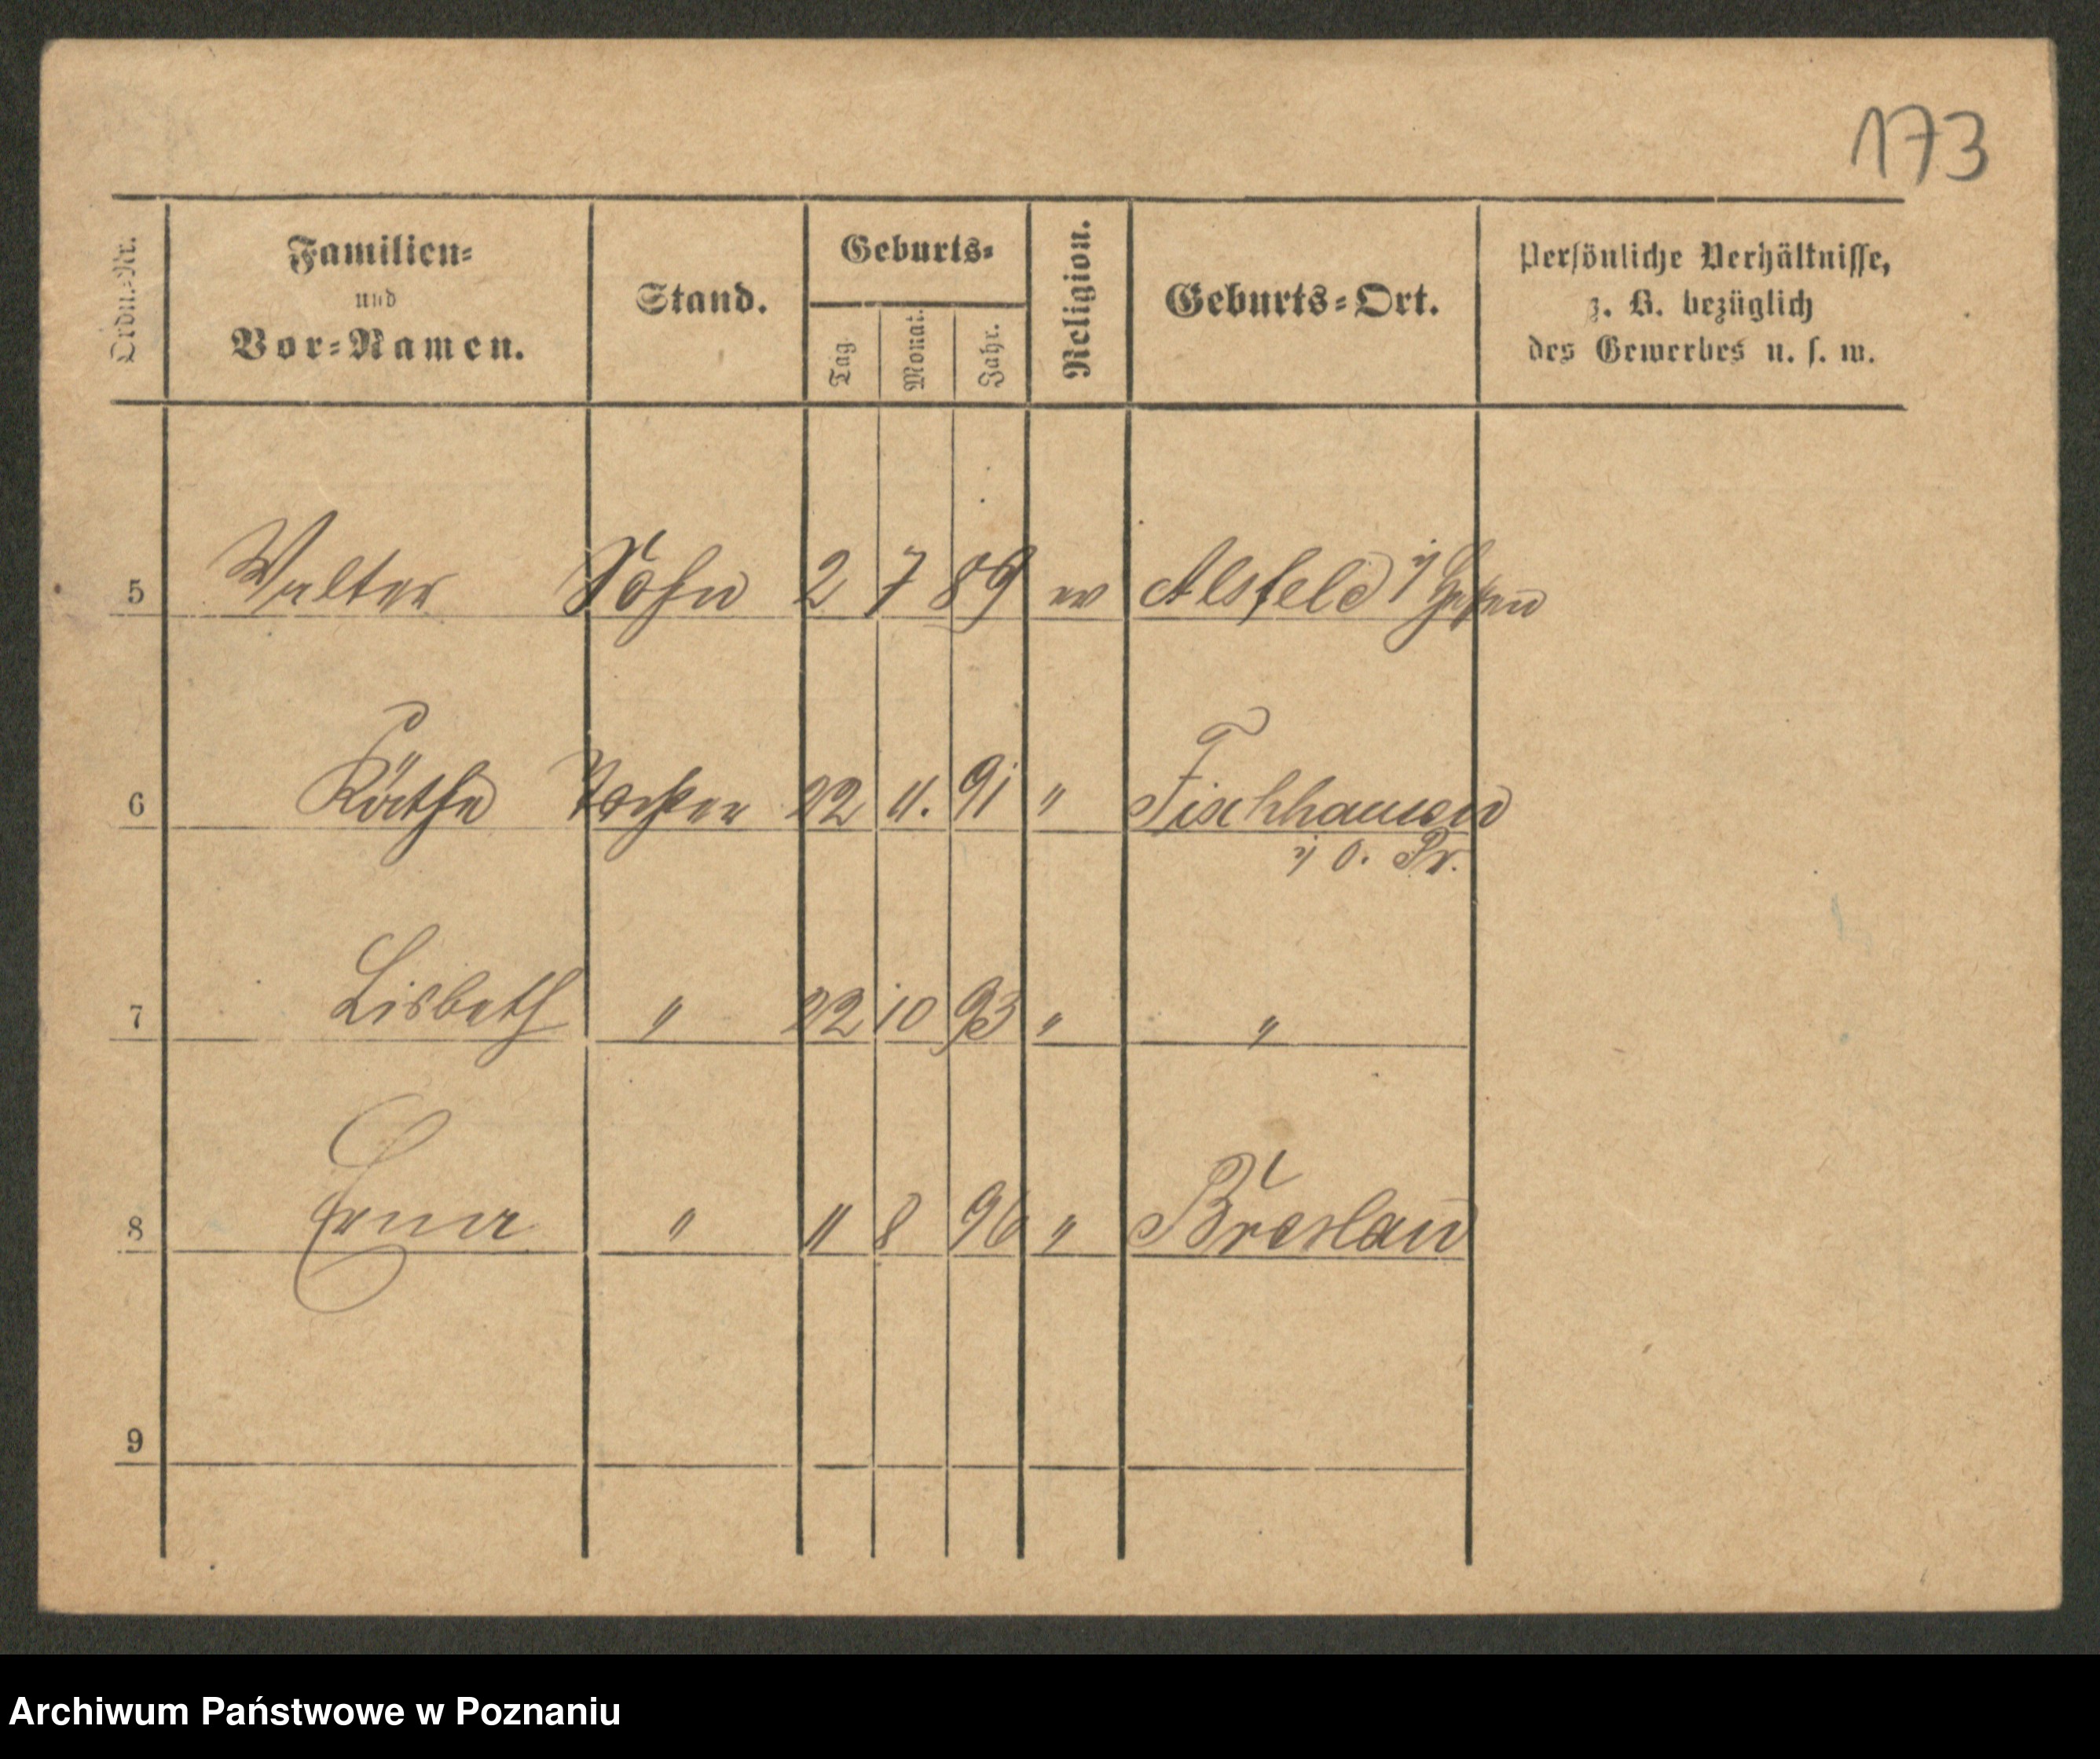 173
Ordn.-Nr.
Familien-
und
Vor-Namen.
Stand.
Geburts-
Tag.
Monat.
Jahr.
Religion.
Geburts-Ort.
Persönliche Verhältnisse,
z. B. bezüglich
des Gewerbes u. s. w.
5 Walter Sohn 2 7 89 ev Alsfeld i/ Hessen
6 Käthe Tochter 22 11. 91 " Fischhausen
i/ O. Pr.
7 Lisbeth " 22 10 93 " "
8 Erna " 11 8 96 " Breslau
9
Archiwum Państwowe w Poznaniu